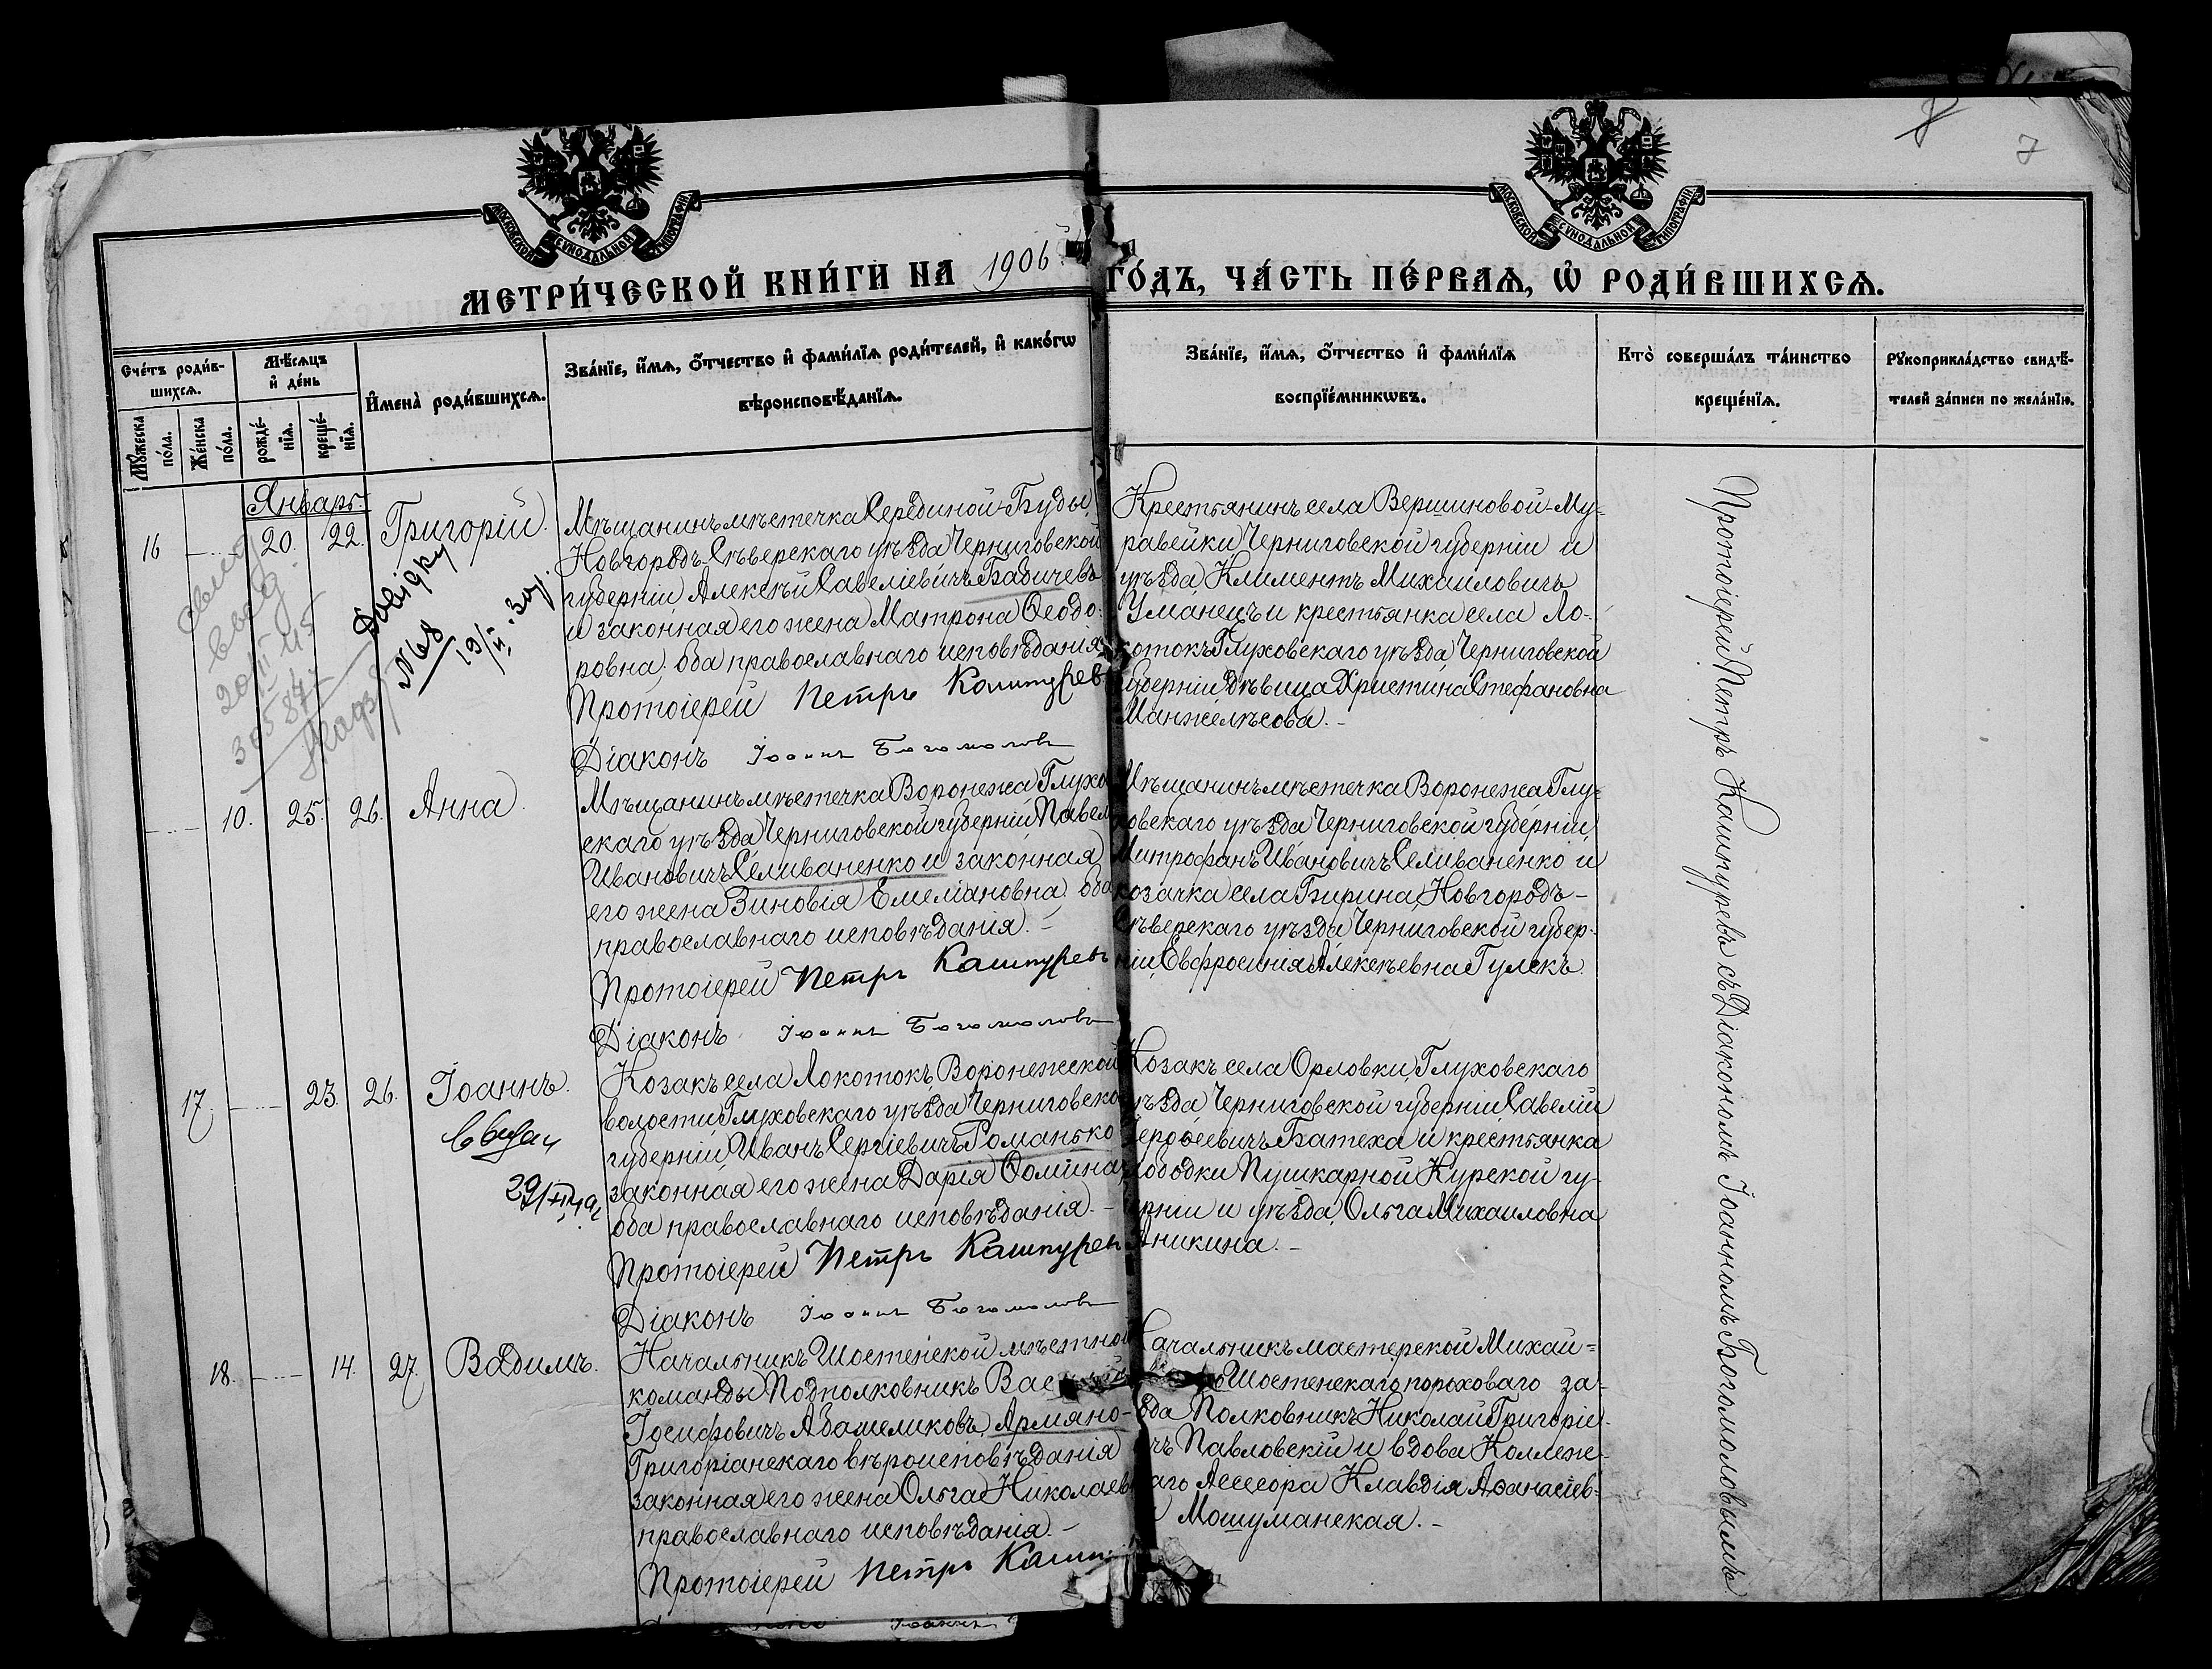 7
МОСКОВСКОЙ СУНОДАЛЬНОЙ ТИПОГРАФІИ
МОСКОВСКОЙ СУНОДАЛЬНОЙ ТИПОГРАФІИ
МЕТРИ́ЧЕСКОЙ КНИ́ГИ НА 1906 ГО́ДЪ, ЧА́СТЬ ПЕ́РВАѦ, Ѡ҆ РОДИ́ВШИХСѦ.
Сче́тъ роди́в-
шихсѧ.
Мꙋ́жеска по́ла.
Же́нска по́ла.
Мѣ́сѧцъ и҆ де́нь
рожде́-
нїѧ.
креще́-
нїѧ.
И҆мена̀ роди́вшихсѧ.
Зва́нїе, и҆́мѧ, ѻ҆́тчество и҆ фами́лїѧ роди́телей, и҆ како́гѡ
вѣроисповѣ́данїѧ.
Зва́нїе, и҆́мѧ, ѻ҆́тчество и҆ фами́лїѧ
воспрїе́мникѡвъ.
Кто̀ соверша́лъ та́инство
креще́нїѧ.
Рꙋкоприкла́дство свидѣ́-
телей за́писи по жела́нїю.
Январь.
16 20. 22. Григорій.
Мѣщанинъ мѣстечка Середи́ной-Буды,
Новгородъ-Сѣверскаго уѣзда Черниговской
губерніи Алексѣй Савеліевичъ Бабичевъ
и законная его жена Матрона Ѳеодо-
ровна; оба православнаго исповѣданія.
Протоіерей Петръ Кашпуревъ
Діаконъ Іоаннъ Богомоловъ
Крестьянинъ села Вершиновой-Му-
равейки, Черниговской губерніи и
уѣзда Климентъ Михаиловичъ
Уманецъ и крестьянка села Ло-
котокъ Глуховскаго уѣзда, Черниговской
губерніи дѣвица Христина Стефановна
Манжелѣсова. -
Довідку
№8
19/II
10. 25. 26. Анна.
Мѣщанинъ мѣстечка Воронежа Глухов
скаго уѣзда Черниговской губерніи Павелъ
Ивановичъ Селиваненко и законная
его жена Зиновія Емеліановна; оба
православнаго исповѣданія. -
Протоіерей Петръ Кашпуревъ
Діаконъ Іоаннъ Богомоловъ
Мѣщанинъ мѣстечка Воронежа Глу-
ховскаго уѣзда Черниговской губерніи,
Митрофанъ Ивановичъ Селиваненко и
козачка села Бирина, Новгородъ-
Сѣверскаго уѣзда Черниговской губер-
ніи, Евфросинія Алексѣевна Гулекъ.
17. 23. 26. Іоаннъ.
Козакъ села Локотокъ, Воронежской
волости, Глуховскаго уѣзда Черниговской
губерніи, Иванъ Сергіевичъ Романько
законная его жена Дарія Ѳомина;
оба православнаго исповѣданія. -
Протоіерей Петръ Кашпуревъ
Діаконъ Іоаннъ Богомоловъ
Козакъ села Орловки, Глуховскаго
уѣзда Черниговской губерніи Савелій
Еровеевичъ Батеха и крестьянка
слободки Пушкарной Курской гу-
берніи и уѣзда, Ольга Михаиловна
Аникина. -
18. 14. 27. Вадимъ.
Начальникъ Шостенской мѣстной
команды Подполковникъ Вас
Іосифовичъ Абамеликовъ, Армяно-
Григоріанскаго вѣроисповѣданія
законная его жена Ольга Николаев
православнаго исповѣданія. -
Протоіерей Петръ Кашп
Начальникъ мастерской Михай-
Шостенскаго пороховаго за-
вода Полковникъ Николай Григоріе-
вичъ Павловскій и вдова Коллеж-
скаго Ассесора Клавдія Аѳанасіев-
Мошуманская. -
Протоіерей Петръ Кашпуревъ съ Діакономъ Іоанномъ Богомоловымъ.